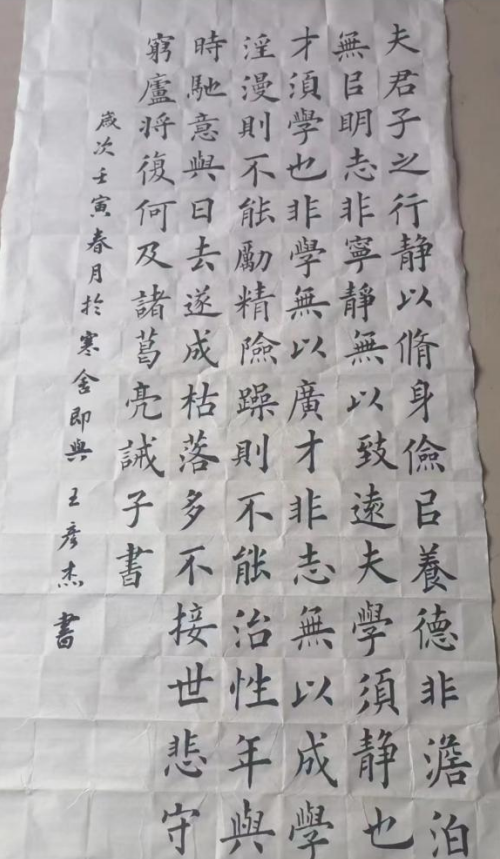 夫君子之行静以脩身儉㠯養德非澹泊
無㠯明志非寧静無以致遠夫學須静也
才須學也非學無以廣才非志無以成學
淫漫則不能勵精險躁則不能治性年與
時馳意與日去遂成枯落多不接世悲守
窮廬將復何及諸葛亮誡子書
歲次壬寅春月於寒舍即興 王彦杰 書